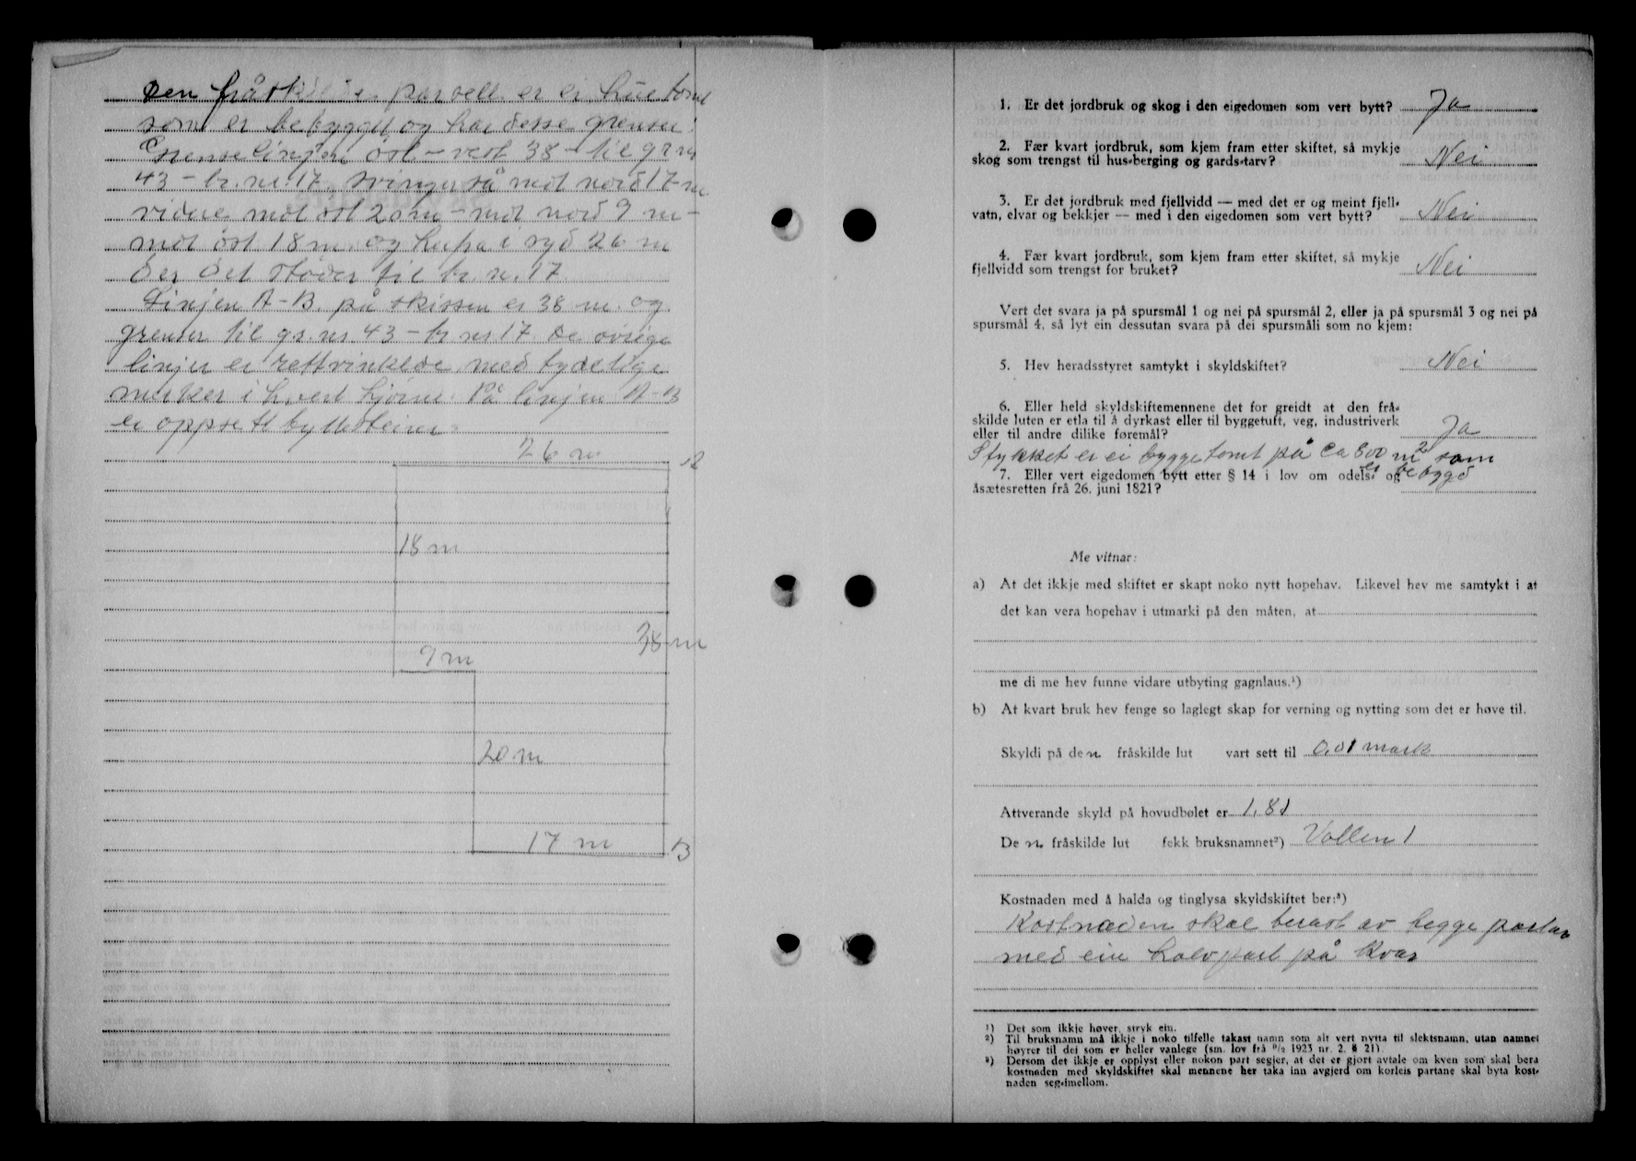 Den fråskilde parsell er ei hustomt
som er bebygget og har desse grenser:
Grenselinjen öst – vest 38 – til gr nr
43 – br. nr. 17, svinger så mot nord 17 m
videre mot öst 20 m – mot nord 9 m –
mot öst 18 m. og herfra i syd 26 m
der det stöder til br. nr. 17
Linjen A – B. på skissen er 38 m. og
grenser til gr. nr 43 – br nr 17. De övrige
linjer er rettvinklede med tydelige
merker i hvert hjörne. På linjen A – B
er oppsett bytesteiner.
26 m A
18 m
38 m
9 m
20 m
17 m B
1. Er det jordbruk og skog i den eigedomen som vert bytt? Ja
2. Fær kvart jordbruk, som kjem fram etter skiftet, så mykje
skog som trengst til hus-berging og gards-tarv? Nei
3. Er det jordbruk med fjellvidd — med det er og meint fjell-
vatn, elvar og bekkjer — med i den eigedomen som vert bytt? Nei
4. Fær kvart jordbruk, som kjem fram etter skiftet, så mykje
fjellvidd som trengst for bruket? Nei
Vert det svara ja på spursmål 1 og nei på spursmål 2, eller ja på spursmål 3 og nei på
spursmål 4, så lyt ein dessutan svara på dei spursmåli som no kjem:
5. Hev heradsstyret samtykt i skyldskiftet? Nei
6. Eller held skyldskiftemennene det for greidt at den frå-
skilde luten er etla til å dyrkast eller til byggetuft, veg, industriverk
eller til andre dilike føremål? Ja
Stykket er ei byggetomt på ca 800 m2 som
er bebygd
7. Eller vert eigedomen bytt etter § 14 i lov om odels- og
åsætesretten frå 26. juni 1821?
Me vitnar:
a) At det ikkje med skiftet er skapt noko nytt hopehav. Likevel hev me samtykt i at
det kan vera hopehav i utmarki på den måten, at
me di me hev funne vidare utbyting gagnlaus.¹)
b) At kvart bruk hev fenge so laglegt skap for verning og nytting som det er høve til.
Skyldi på den fråskilde lut vart sett til 0,01 mark
Attverande skyld på hovudbølet er 1,81
Den fråskilde lut fekk bruksnamnet²) Vollen 1
Kostnaden med å halda og tinglysa skyldskiftet ber:³)
Kostnaden skal berast av begge partar
med ein halvpart på kvar
¹) Det som ikkje høver, stryk ein.
²) Til bruksnamn må ikkje i noko tilfelle takast namn som alt vert nytta til slektsnamn, utan namnet
høyrer til dei som er heller vanlege (sm. lov frå 9/2 1923 nr. 2. § 21).
³) Dersom det ikkje er opplyst eller nokon part segjer, at det er gjort avtale om kven som skal bera
kostnaden med skyldskiftet skal mennene her taka inn avgjerd om korleis partane skal byta kost-
naden seg-imellom.